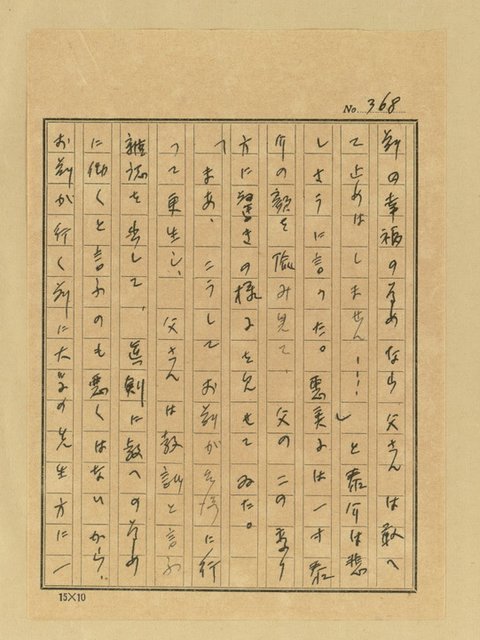 No. 368
前の幸福の為めなら父さんは敢へ
て止めはしません……」と泰介は悲
しさうに言つた。恵美子は一寸泰
介の顔を偸み見て、父のこの変り
方に驚きの様子を見せてゐた。
「まあ、こうしてお前が台湾に行
つて更生し、父さんは教訓と言ふ
雑誌を出して、真剣に教への為め
に働くと言ふのも悪くはないから、
お前が行く前に大島の先生方に一
15×10